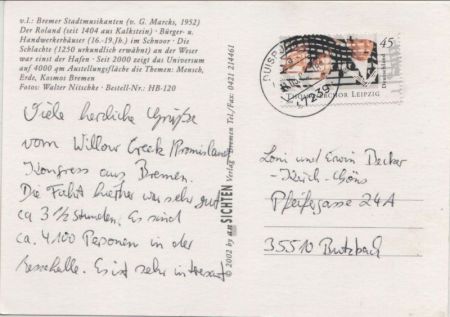 v.l.: Bremer Stadtmusikanten (v. G. Marcks, 1952)
Der Roland (seit 1404 aus Kalkstein) · Bürger- u.
Handwerkerhäuser (16.-19.Jh.) im Schnoor · Die
Schlachte (1250 urkundlich erwähnt) an der Weser
war einst der Hafen · Seit 2000 zeigt das Universum
auf 4000 qm Austellungsfläche die Themen: Mensch,
Erde, Kosmos Bremen
Fotos: Walter Nitschke · Bestell-Nr.: HB-120
Viele herzliche Grüße
vom Willow Creek/Promiseland
Kongress aus Bremen.
Die Fahrt hierher war sehr gut
ca 3 ½ Stunden. Es sind
ca. 4100 Personen in der
Messehalle. Es ist sehr interessant
© 2002 by anSICHTEN Verlag Bremen Tel./Fax. 0421 214461
45
Deutschland
LEIPZIG
Loni und Erwin Becker
-Kirch-Göns
Pfeifergasse 24A
35510 Butzbach